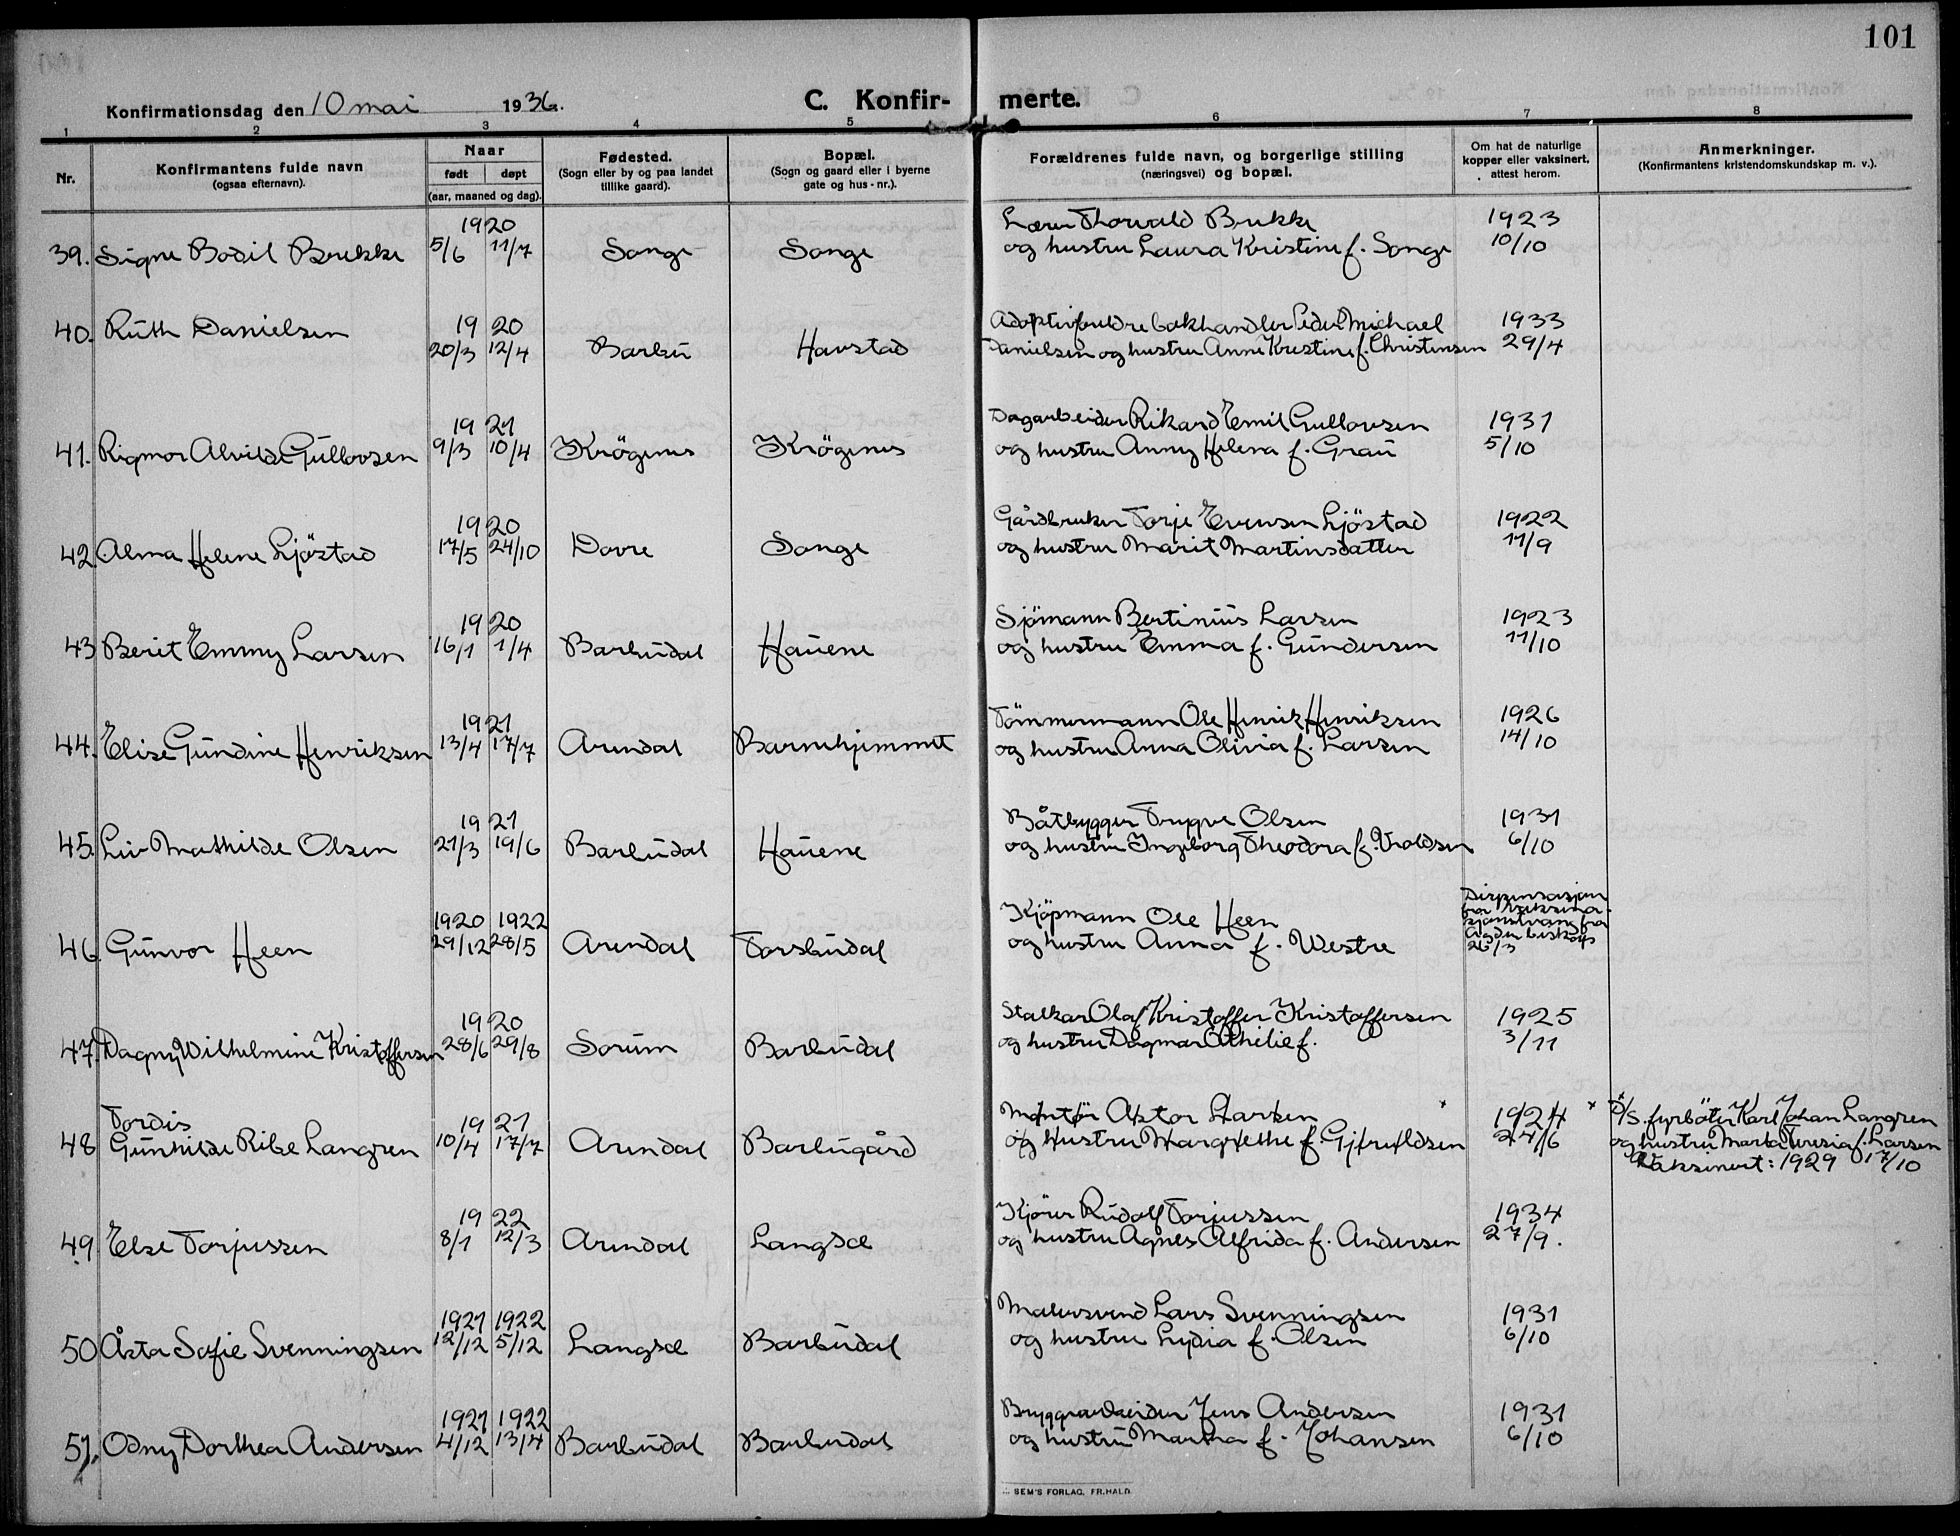 101
Konfirmationsdag den 10 mai 1936.
C. Konfir- merte.
1 2 3 4 5 6 7 8
Nr.
Konfirmantens fulde navn
(ogsaa efternavn).
Naar
født døpt
(aar, maaned og dag).
Fødested.
(Sogn eller by og paa landet
tillike gaard).
Bopæl.
(Sogn og gaard eller i byerne
gate og hus-nr.).
Forældrenes fulde navn, og borgerlige stilling
(næringsvei) og bopæl.
Om hat de naturlige
kopper eller vaksinert,
attest herom.
Anmerkninger.
(Konfirmantens kristendomskundskap m. v.).
1920 Lærer Thorvald Brekke 1923
39. Signe Bodil Brekke 5/6 11/7 Songe Songe og hustru Laura Kristine f. Songe 10/10
40. Ruth Danielsen 1920 Adoptivforeldre bokhandler Peder Michael 1933
20/3 12/4 Barbu Havstad Danielsen og hustru Anne Kristine f. Christensen 29/4
1921 Dagarbeider Rikard Emil Gullovsen 1931
41. Rigmor Alvilde Gullovsen 9/3 10/4 Krögenes Krögenes og hustru Anny Helena f. Grau 5/10
1920 Gårdbruker Torje Evensen Ljöstad 1922
42 Alma Helene Ljöstad 17/5 24/10 Dovre Songe og hustru Marit Martinsdatter 11/9
1920 Sjömann Bertinius Larsen 1923
43 Berit Emmy Larsen 16/1 1/4 Barbudal Hauene og hustru Emma f. Gundersen 11/10
1921 Tömmermann Ole Henrik Henriksen 1926
44. Elise Gundine Henriksen 13/4 17/7 Arendal Barnehjemmet og hustru Anna Olivia f. Larsen 14/10
1921 Båtbygger Trygve Olsen 1931
45. Liv Mathilde Olsen 21/3 19/6 Barbudal Hauene og hustru Ingeborg Theodora f. Vroldsen 6/10
1920 1922 Kjöpmann Ole Heen Dispensasjon
46 Gunvor Heen 29/12 28/5 Arendal Torsbudal og hustru Anna f. Westre fra
Agder biskop
26/3
1920 Olaf Kristoffer Kristoffersen 1925
47. Dagny Wilhelmine Kristoffersen 28/6 29/8 Sorum Barbudal og hustru Dagmar Othilie f. 3/11
Tordis 1921 Montør Aktor Starken × 1924 × D/S. fyrböter Karl Johan Langren
48 Gunhilde Ribe Langren 10/4 17/7 Arendal Barbugård og Hustru Margrethe f. 24/6 og hustru Marta Teresia f. Larsen
Vaksinert: 1929 17/10
1922 Kjörer Rudolf Torjussen 1934
49 Else Torjussen 8/1 12/3 Arendal Langsæ og hustru Agnes Alfrida f. Andersen 27/9.
1921 1922 Malersvend Lars Svenningsen 1931
50 Åsta Sofie Svenningsen 12/12 5/12 Langsæ Barbudal og hustru Lydia f. Olsen 6/10
1921 1922 Bryggeriarbeider Jens Andersen 1931
51. Odny Dorthea Andersen 4/12 13/4 Barbudal Barbudal og hustru Martha f. Johansen 6/10
SEM'S FORLAG, FR.HALD